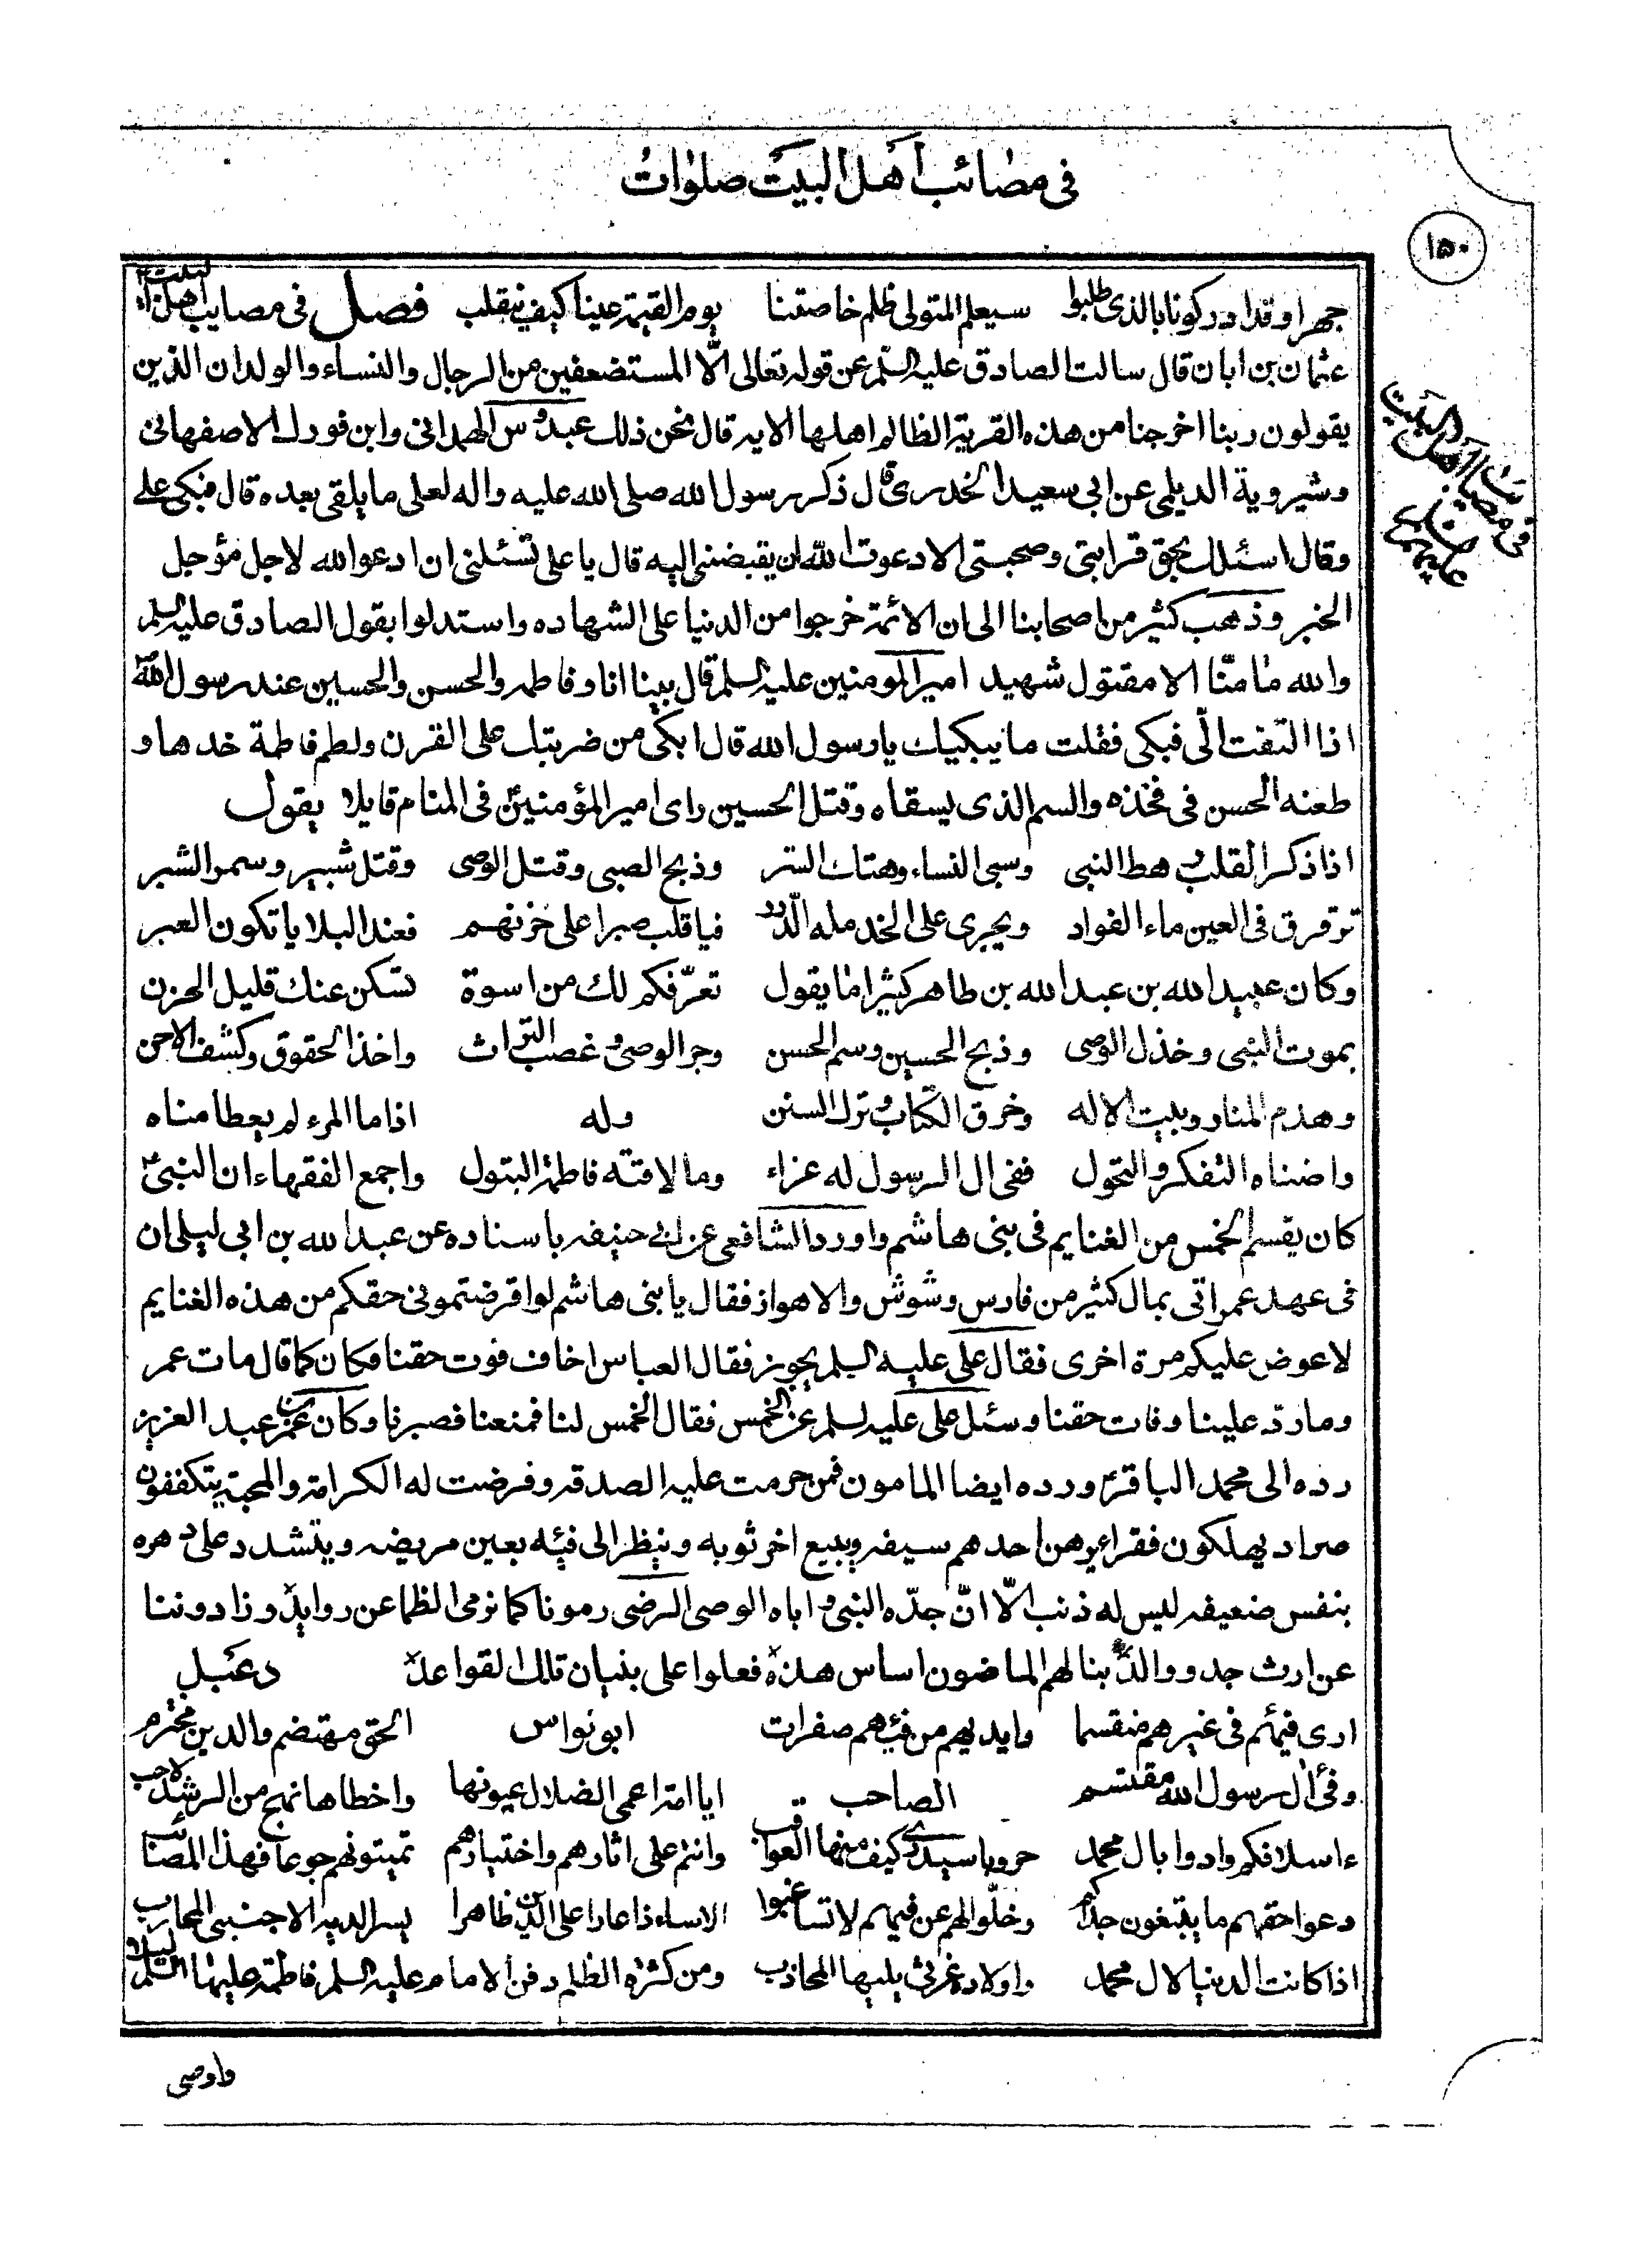 في مصائب اهل البيت صلوات
١٥٠
جهرا وقد ادركونا بالذى طلبوا سيعلم المتولى ظلم خاصتنا يوم القيمة عينا كيف ينقلب فصل في مصايب اهل البيت ع
عثمان بن ابان قال سالت الصادق عليه السلم عن قوله تعالى الّا المستضعفين من الرجال والنساء والولدان الذين
يقولون ربنا اخرجنا من هذه القرية الظالم اهلها الايه قال نحن ذلك عبدوس الهمدانى وابن فورك الاصفهانى
وشيروية الديلمى عن ابى سعيد الخدرى قال ذكر رسول الله صلى الله عليه واله لعلى ما يلقى بعده قال فبكى على
وقال اسئلك بحق قرابتى وصحبتى الا دعوت الله ان يقبضنى اليه قال يا على تسئلنى ان ادعو الله لاجل مؤجل
الخبر وذهب كثير من اصحابنا الى ان الائمة خرجوا من الدنيا على الشهاده واستدلوا بقول الصادق عليه السلم
والله ما منّا الا مقتول شهيد امير المومنين عليه السلم قال بينا انا وفاطمه والحسن والحسين عند رسول الله ص
اذا التفت الّى فبكى فقلت ما يبكيك يا رسول الله قال ابكى من ضربتك على القرن ولطم فاطمة خدها و
طعنه الحسن فى فخذه والسم الذى يسقاه وقتل الحسين راى امير المؤمنين ع فى المنام قايلا يقول
اذا ذكر القلب رهط النبى وسبى النساء وهتك الستر وذبح الصبى وقتل الوصى وقتل شبير وسم الشبر
ترقرق فى العين ماء الفواد ويجرى على الخد مله الدّرر فيا قلب صبرا على حزنهم فعند البلايا تكون العبر
وكان عبيد الله بن عبد الله بن طاهر كثيرا ما يقول تعزّ فكم لك من اسوة تسكن عنك قليل الحزن
بموت النبى وخذل الوصى وذبح الحسين وسم الحسن وجر الوصى وغصب التراث واخذ الحقوق وكشف الاحن
وهدم المنار وبيت الاله وخرق الكتاب وترك السنن وله اذا ما المرء لم يعطا مناه
واضناه التفكر والنحول ففى ال الرسول له عزاء وما لاقته فاطمة البتول واجمع الفقهاء ان النبى ع
كان يقسم الخمس من الغنايم فى بنى هاشم واورد الشافعى عن ابى حنيفه باسناده عن عبد الله بن ابى ليلى ان
فى عهد عمر اتى بمال كثير من فارس وشوش والاهواز فقال يا بنى هاشم لو اقرضتمونى حقكم من هذه الغنايم
لاعوض عليكم مرة اخرى فقال على عليه السلم يجوز فقال العباس اخاف فوت حقنا فكان كما قال مات عمر
وما ردّ علينا وفات حقنا وسئل على عليه السلم عن الخمس فقال الخمس لنا فمنعنا فصبرنا وكان عمر بن عبد العزيز
رده الى محمد الباقر ع ورده ايضا المامون فمن حرمت عليه الصدقه وفرضت له الكرامة والمحبة يتكففون
صراد يهلكون فقرا يرهن احدهم سيفه ويبيع اخر ثوبه وينظر الى فيئه بعين مريضه ويتشدد على دهره
بنفس ضعيفه ليس له ذنب الّا انّ جدّه النبى واباه الوصى الرضى رمونا كما ترمى الظما عن روايد وزادوننا
عن ارث جد ووالد بنا لهم الماضون اساس هذه فعلوا على بنيان تلك القواعد دعبل
ارى فيئهم فى غيرهم منقسما وايديهم من فيئهم صفرات ابو نواس الحق مهتضم والدين مخترم
وفئ ال رسول الله مقتسم الصاحب ايا امة اعمى الضلال عيونها واخطاها نهج من الرشد لاحب
ءاسلافكم اودوا بال محمد حروبا سيدرى كيف منها العواقب وانتم على اثارهم واختيارهم تميتونهم جوعا فهذا المصائب
دعوا حقهم ما يبتغون جداكم وخلّوا لهم عن فيئهم لا تساغبوا الا ساء ذا عارا على الدين ظاهرا يسر الديه الاجنبى المحارب
اذا كانت الدنيا لال محمد واولاده غرثى يليها المحاذب ومن كثرة الظلم دفن الامام عليه السلم فاطمة عليها السلم ليلا
واوصى